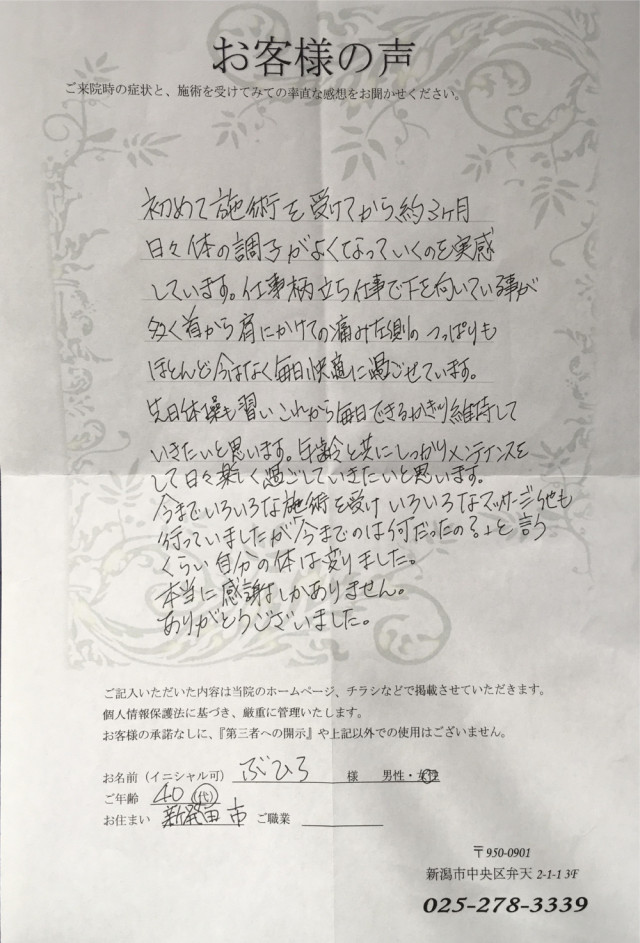 お客様の声
ご来院時の症状と、施術を受けてみての率直な感想をお聞かせください。
初めて施術を受けてから約3ヶ月
日々体の調子がよくなっていくのを実感
しています。仕事柄立ち仕事で下を向いている事が
多く首から肩にかけての痛み左側のつっぱりも
ほとんど今はなく毎日快適に過ごせています。
先日体操も習いこれから毎日できるかぎり維持して
いきたいと思います。年齢と共にしっかりメンテナンスを
して日々楽しく過ごしていきたいと思います。
今までいろいろな施術を受けいろいろなマッサージ他も
行っていましたが「今までのは何だったの？」と言う
くらい自分の体は変りました。
本当に感謝しかありません。
ありがとうございました。
ご記入いただいた内容は当院のホームページ、チラシなどで掲載させていただきます。
個人情報保護法に基づき、厳重に管理いたします。
お客様の承諾なしに、『第三者への開示』や上記以外での使用はございません。
お名前（イニシャル可） ぶひろ 様 男性・女性
ご年齢 40代
お住まい 新発田市 ご職業
〒950-0901
新潟市中央区弁天 2-1-1 3F
025-278-3339